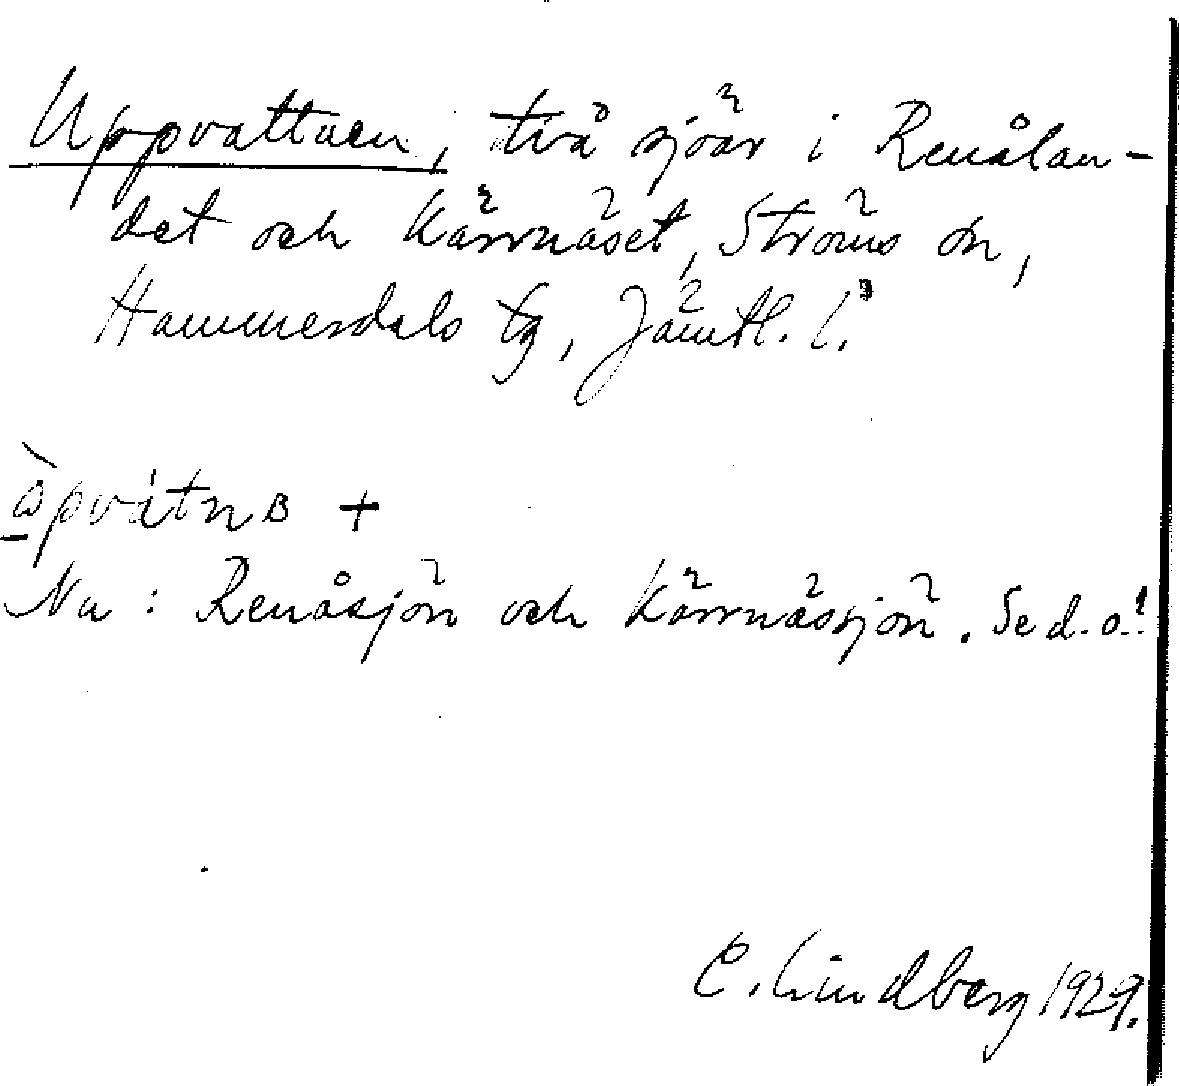 Uppvattnen, två sjöar i Renålan-
det och Kärrnäset, Ströms sn,
Hammerdals tg, Jämtl. l.
åpvátnʙ +
Nu: Renåsjön och Kärrnässjön. Se d.o!
C. Lindberg 1929.